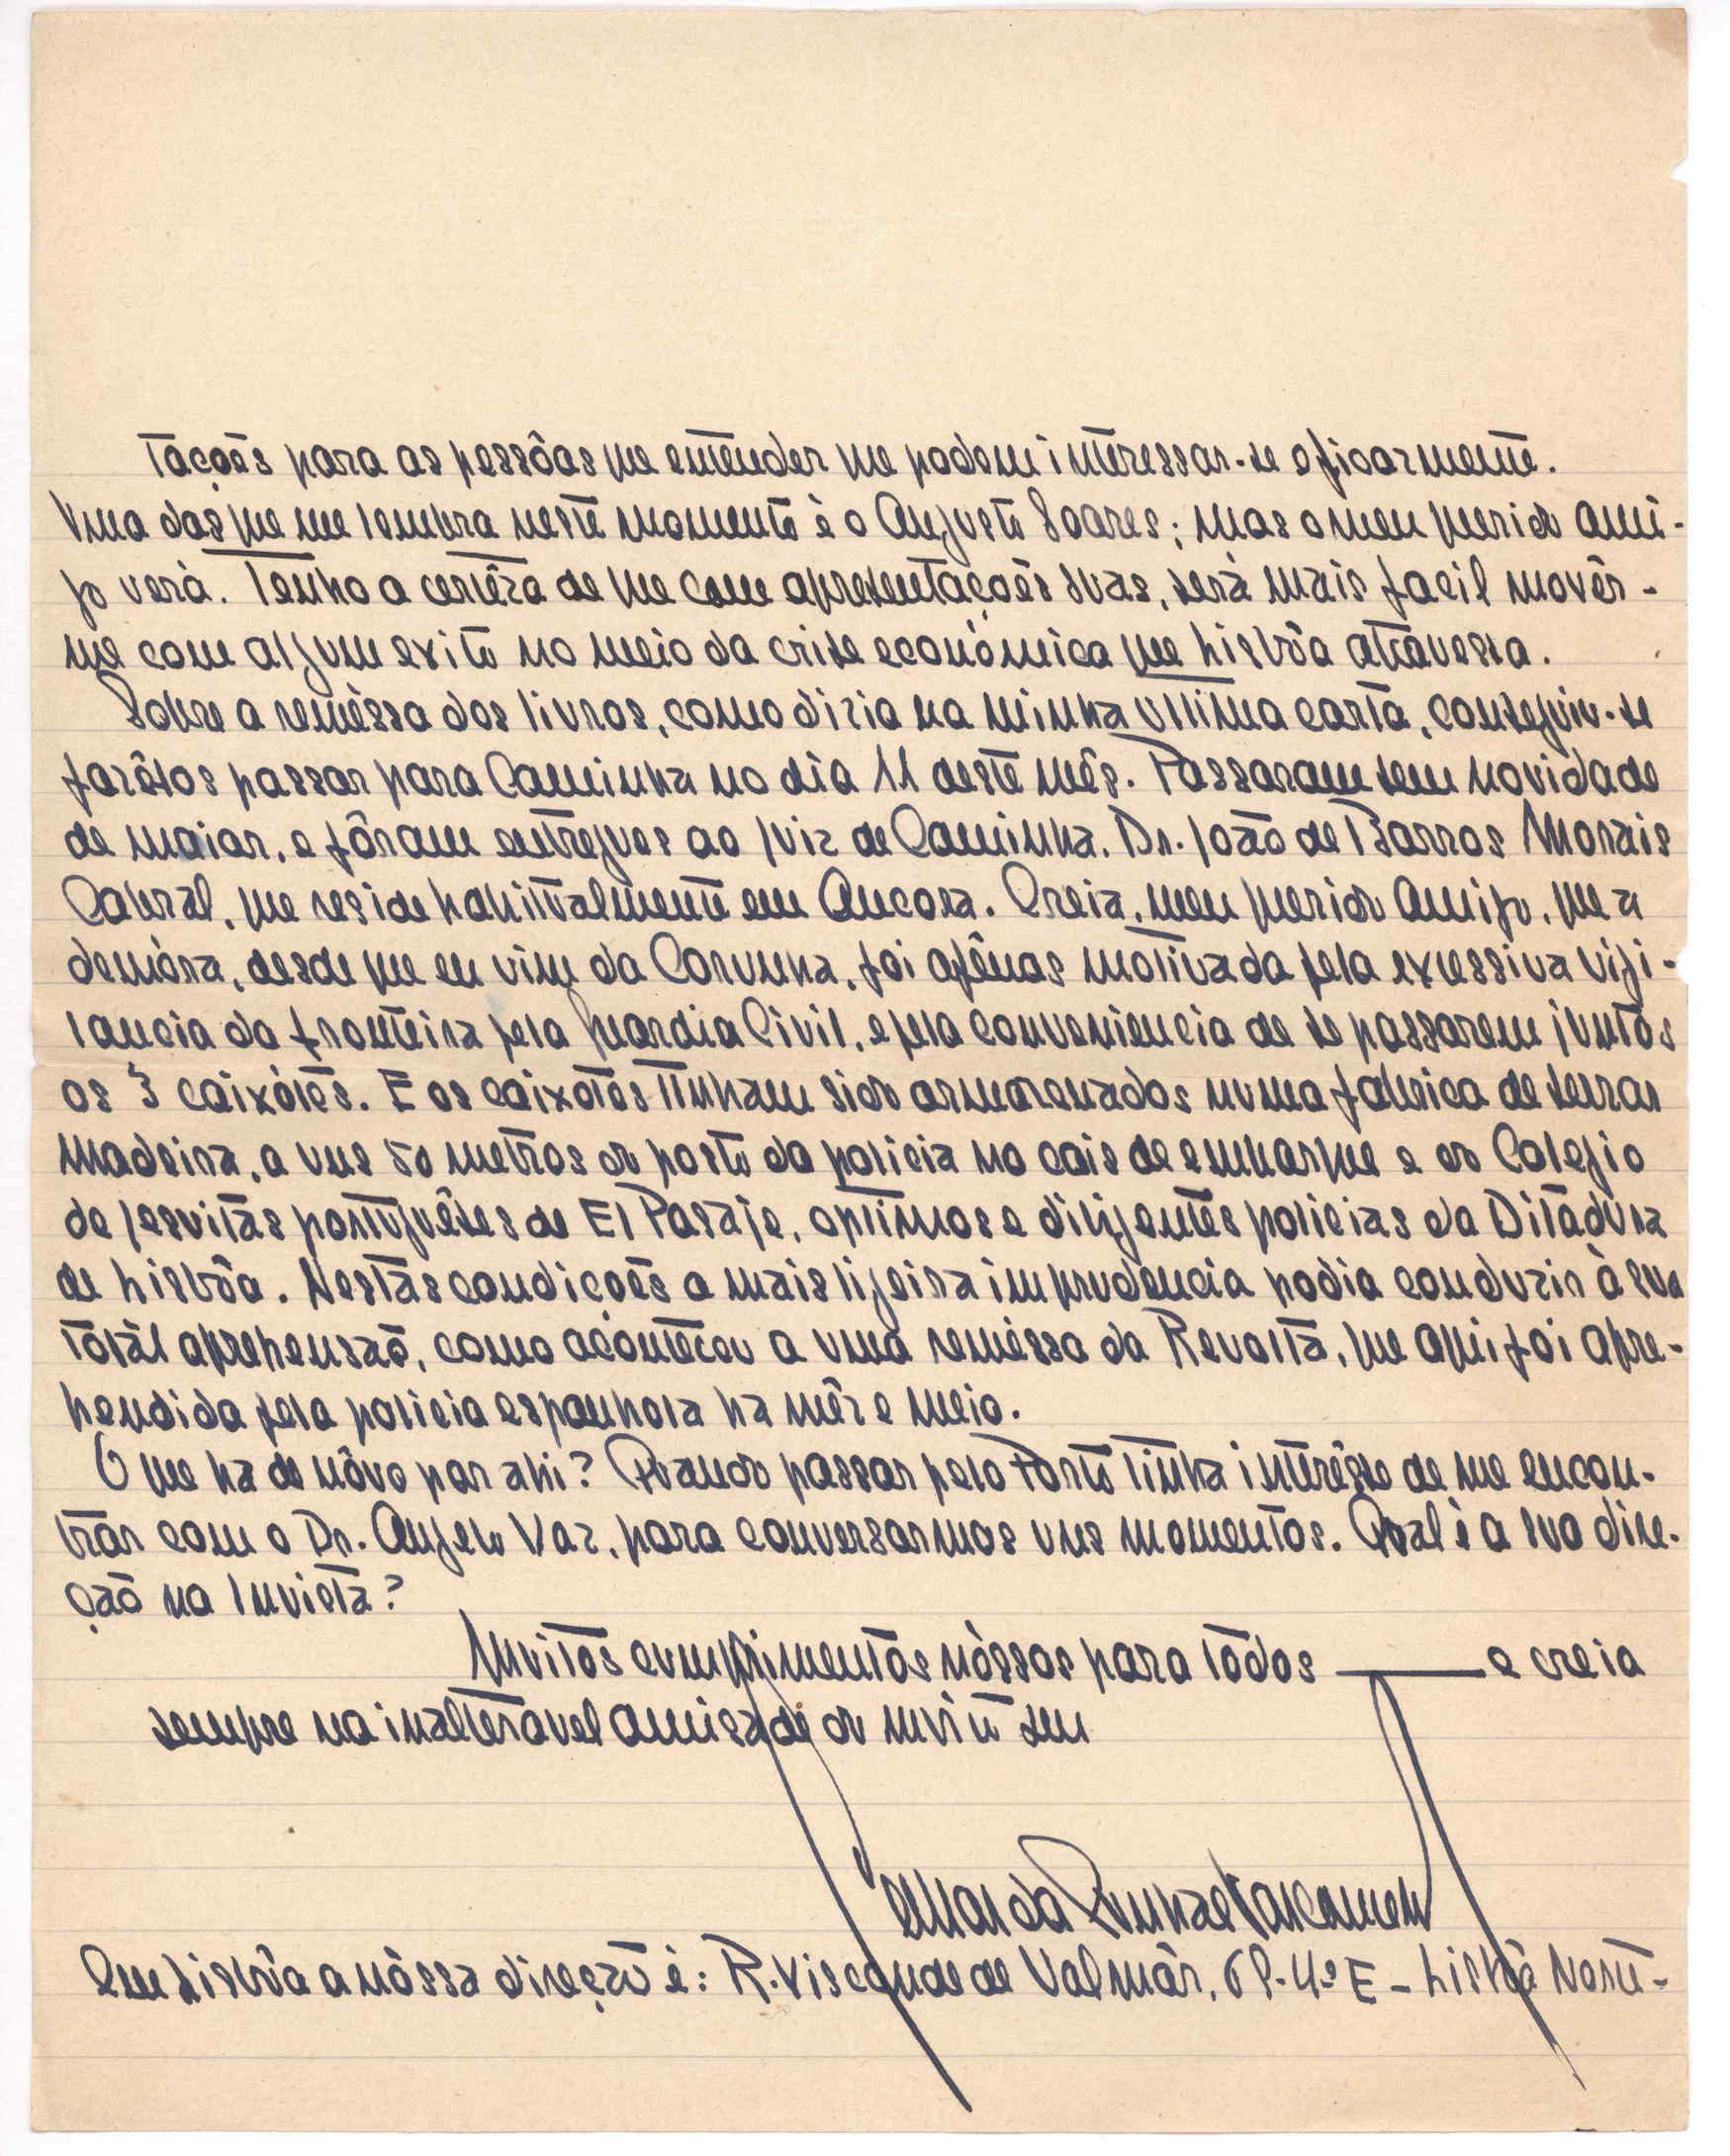 tações para as pessôas que entender que podem interessar-se eficazmente.
Uma das que me lembra neste momento è o Augusto Soares; mas o meu querido ami-
go verà. Tenho a certêza de que com apresentações suas, serà mais facil movêr-
me com algum exito no meio da crise económica que Lisbôa atravessa.
Sobre a remèssa dos livros, como dizia na minha ultima carta, conseguiu-se
fazêlos passar para Caminha no dia 11 deste mês. Passaram sem novidade
de maior, e fôram entregues ao Juiz de Caminha, Dr. João de Barros Morais
Cabral, que reside habitualmente em Ancora. Creia, meu querido Amigo, que a
demóra, desde que eu vim da Corunha, foi apênas motivada pela excessiva vigi-
lancia da fronteira pela Guardia Civil, e pela conveniencia de se passarem juntos
os 3 caixótes. E os caixotes tinham sido armazenados numa fabrica de serrar
madeira, a uns 50 metros do posto da policia no cais de embarque e do Colegio
de Jesuitas portuguêses de El Pasaje, optimos e diligentes policias da Ditadura
de Lisbôa. Nestas condições a mais ligeira imprudencia podia conduzir à sua
totál aprehensão, como aconteceu a uma remèssa da Revolta, que aqui foi apre-
hendida pela policia espanhola ha mêz e meio.
O que ha de nôvo por ahi? Quando passar pelo Porto tinha interêsse de me encon-
trar com o Dr. Angelo Vaz, para conversarmos uns momentos. Qual è a sua dire-
ção na Invicta?
Muitos cumprimentos nòssos para tôdos ——— e creia
sempre na inalteravel amisade do muito seu
Jemar da Cunha e Vasconcelos
Em Lisbôa a nòssa direção è: R. Visconde de Valmôr, 69-4º E - Lisbôa Norte-